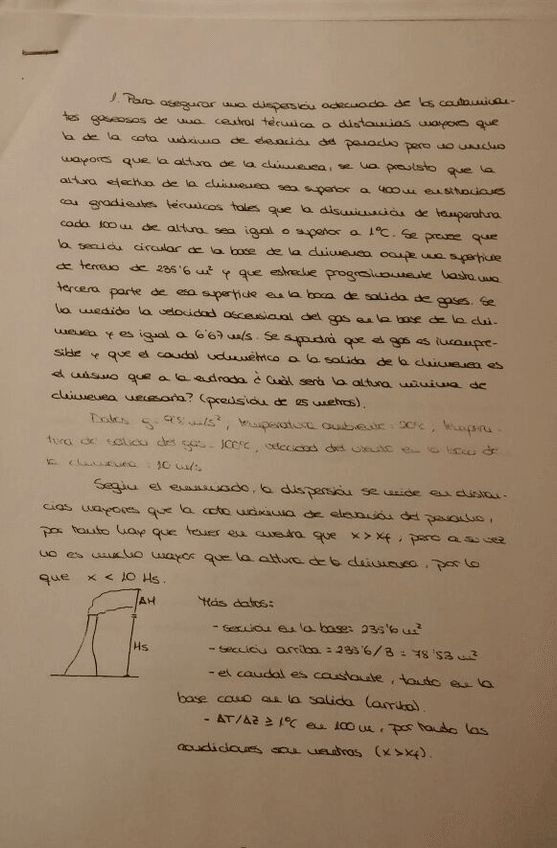 1. Para asegurar una dispersión adecuada de los contaminan-
tes gaseosos de una central térmica a distancias mayores que
la de la cota máxima de elevación del penacho pero no mucho
mayores que la altura de la chimenea, se ha previsto que la
altura efectiva de la chimenea sea superior a 400m en situaciones
con gradientes térmicos tales que la disminución de temperatura
cada 100m de altura sea igual o superior a 1ºC. Se prevee que
la sección circular de la base de la chimenea ocupe una superficie
de terreno de 235'6 m² y que estreche progresivamente hasta una
tercera parte de esa superficie en la boca de salida de gases. Se
ha medido la velocidad ascensional del gas en la base de la chi-
menea y es igual a 6'67 m/s. Se supondrá que el gas es incompre-
sible y que el caudal volumétrico a la salida de la chimenea es
el mismo que a la entrada ¿Cuál será la altura mínima de
chimenea necesaria? (precisión de 25 metros).
Datos g: 9'8 m/s², temperatura ambiente: 20ºC, tempera-
tura de salida del gas: 100ºC, velocidad del viento en la boca de
la chimenea: 10 m/s
Según el enunciado, la dispersión se mide en distan-
cias mayores que la cota máxima de elevación del penacho,
por tanto hay que tener en cuenta que x > xf, pero a su vez
no es mucho mayor que la altura de la chimenea, por lo
que x < 10 Hs.
ΔH
Hs
Más datos:
- sección en la base: 235'6 m²
- sección arriba = 235'6/3 = 78'53 m²
- el caudal es constante, tanto en la
base como en la salida (arriba).
- ΔT/ΔZ ≥ 1ºC en 100m, por tanto las
condiciones son neutras (x > xf).